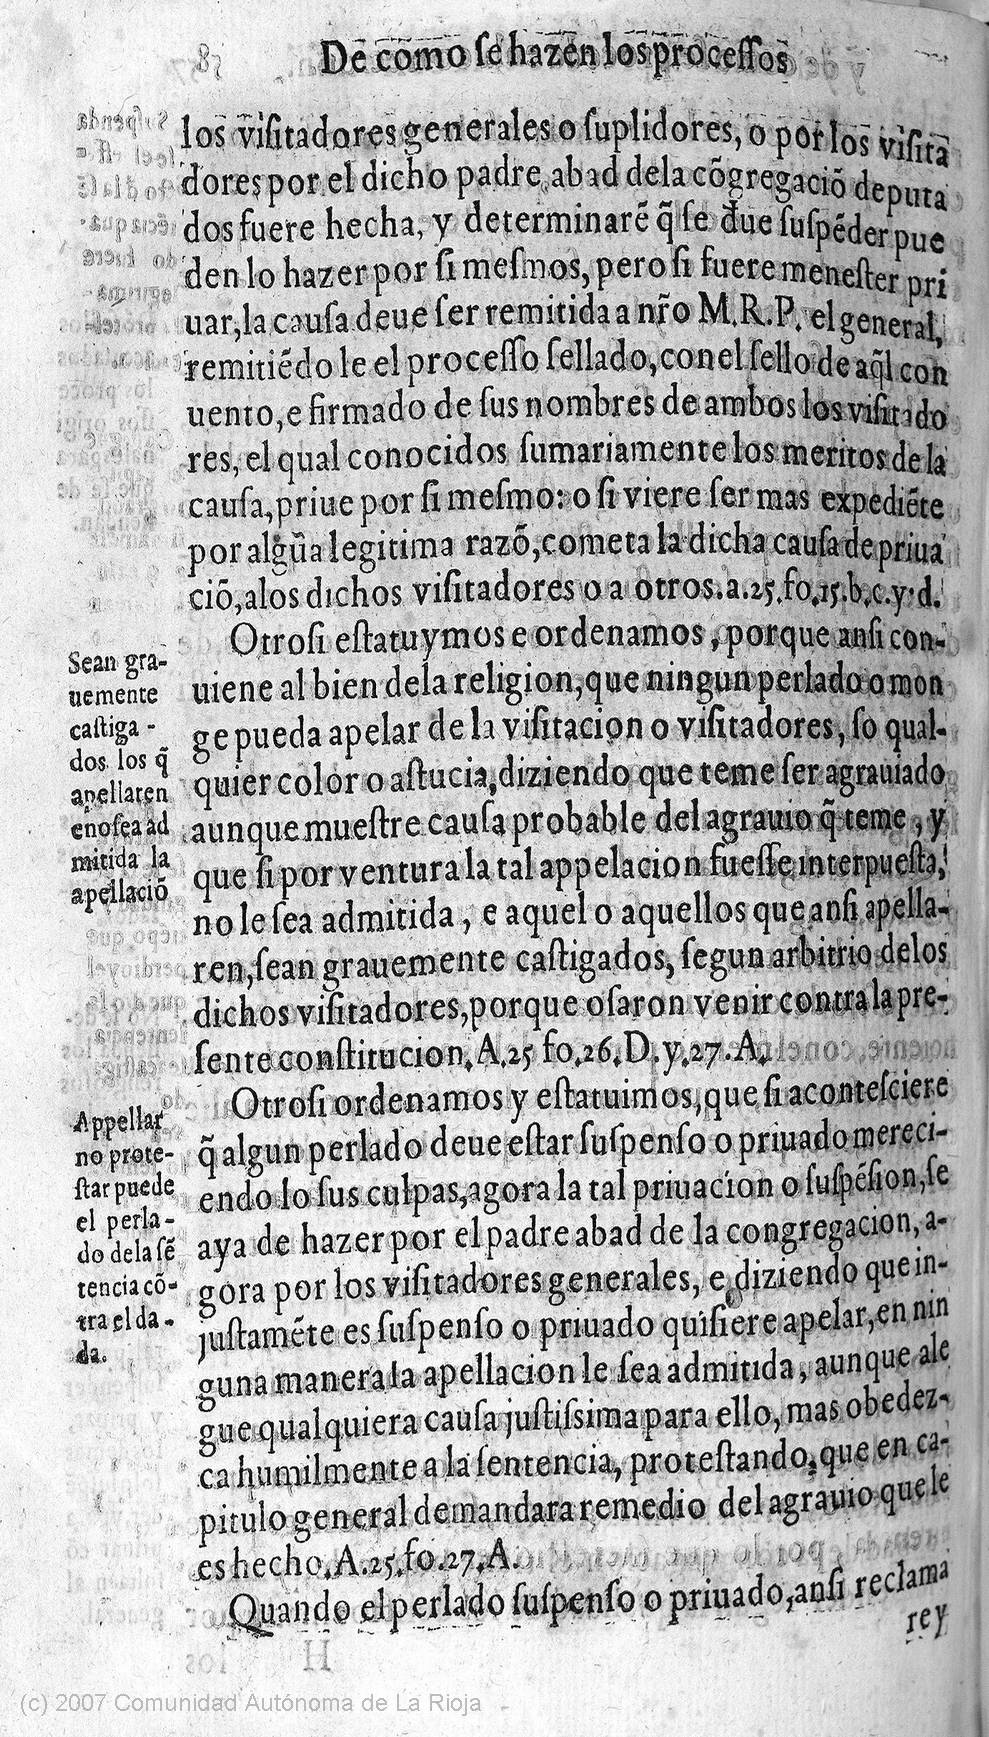 De como ſe hazen los proceſſos
los viſitadores generales o ſuplidores, o por los viſita
dores por el dicho padre abad dela cõgregaciõ deputa
dos fuere hecha, y determinarẽ q̃ ſe đue ſuſpẽder pue
den lo hazer por ſi meſmos, pero ſi fuere meneſter pri
uar, la cauſa deue ſer remitida a nr̃o M.R.P. el general,
remitiẽdo le el proceſſo ſellado, con el ſello de aq̃l con
uento, e firmado de ſus nombres de ambos los viſitado
res, el qual conocidos ſumariamente los meritos de la
cauſa, priue por ſi meſmo: o ſi viere ſer mas expediẽte
por algũa legitima razõ, cometa la dicha cauſa de priua
ciõ, alos dichos viſitadores o a otros. a. 25. fo. 15. b. c. y. d.
Otroſi eſtatuymos e ordenamos, porque anſi con-
uiene al bien dela religion, que ningun perlado o mon
ge pueda apelar de la viſitacion o viſitadores, ſo qual-
quier color o aſtucia, diziendo que teme ſer agrauiado
aunque mueſtre cauſa probable del agrauio q̃ teme, y
que ſi por ventura la tal appelacion fueſſe interpueſta,
no le ſea admitida, e aquel o aquellos que anſi apella-
ren, ſean grauemente caſtigados, ſegun arbitrio delos
dichos viſitadores, porque oſaron venir contra la pre-
ſente conſtitucion. A. 25 fo. 26. D. y. 27. A.
Sean gra-
uemente
caſtiga-
dos los q̃
apellaren
e no ſea ad
mitida la
apellaciõ
Otroſi ordenamos y eſtatuimos, que ſi aconteſciere
q̃ algun perlado deue eſtar ſuſpenſo o priuado mereci-
endo lo ſus culpas, agora la tal priuacion o ſuſpẽſion, ſe
aya de hazer por el padre abad de la congregacion, a-
gora por los viſitadores generales, e diziendo que in-
juſtamẽte es ſuſpenſo o priuado quiſiere apelar, en nin
guna manera la apellacion le ſea admitida, aunque ale
gue qualquiera cauſa juſtiſsima para ello, mas obedez-
ca humilmente a la ſentencia, proteſtando, que en ca-
pitulo general demandara remedio del agrauio que le
es hecho. A. 25. fo. 27. A.
Appellar
no prote-
ſtar puede
el perla-
do dela ſẽ
tencia cõ-
tra el da-
da.
Quando el perlado ſuſpenſo o priuado, anſi reclama
rey
(c) 2007 Comunidad Autónoma de La Rioja